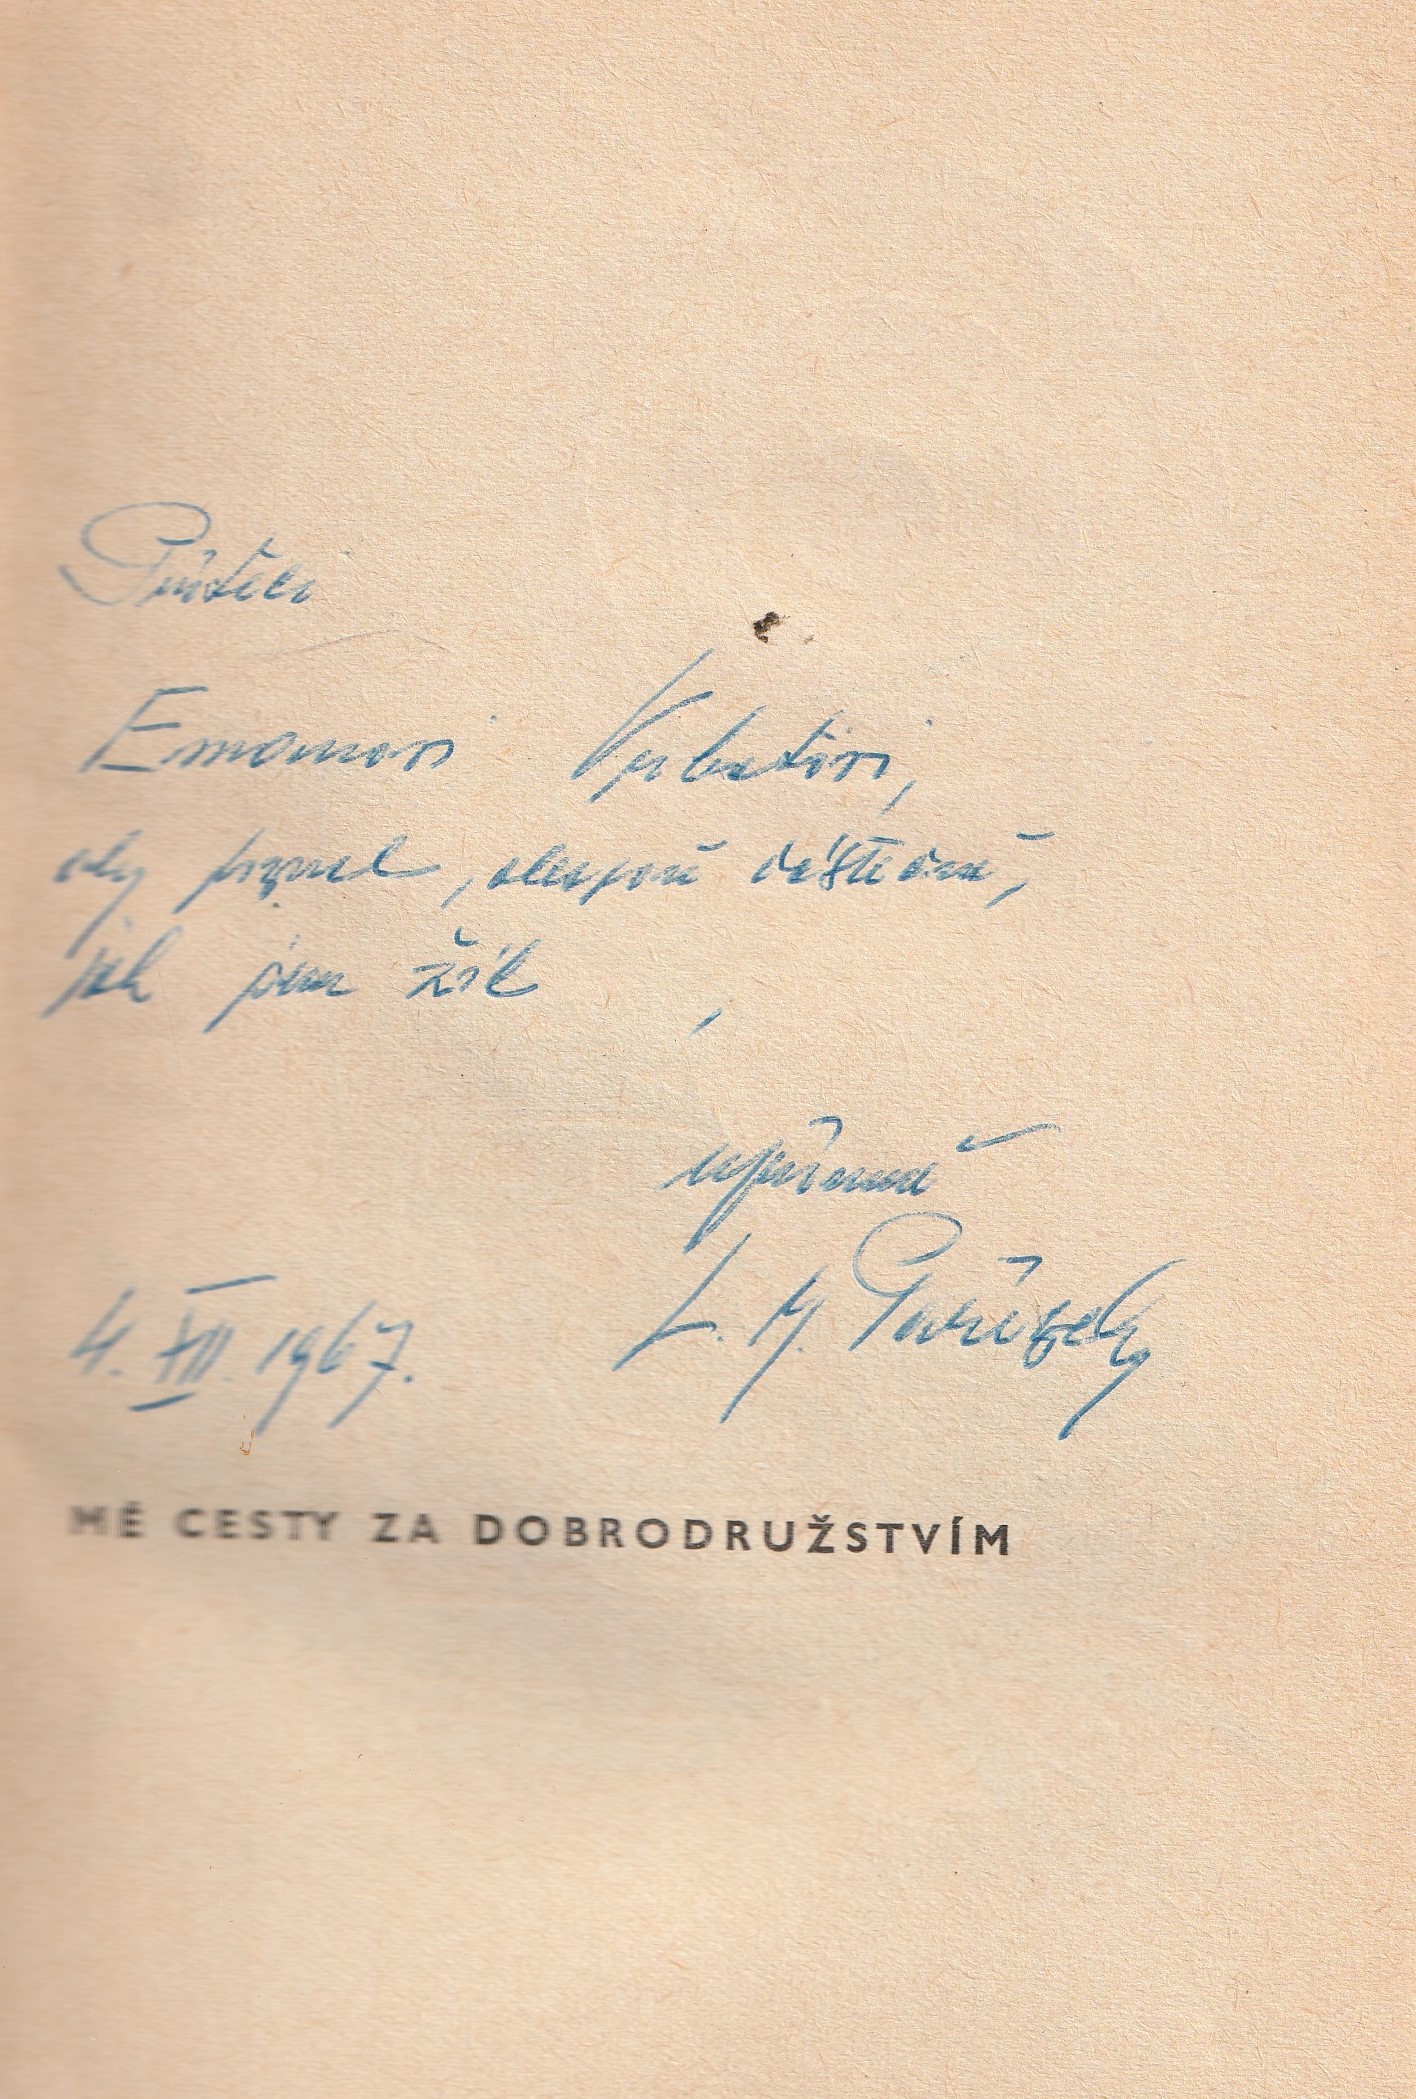 Příteli
Emanovi Vrbatovi,
aby poznal, alespoň částečně,
jak jsem žil,
upřímně
4. XII. 1967. L. M. Pařízek
MÉ CESTY ZA DOBRODRUŽSTVÍM